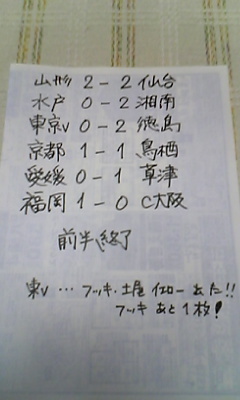 山形 2-2 仙台
水戸 0-2 湘南
東京V 0-2 徳島
京都 1-1 鳥栖
愛媛 0-1 草津
福岡 1-0 C大阪
前半終了
東V… フッキ・土屋 イエロー あた!!
フッキ あと1枚!